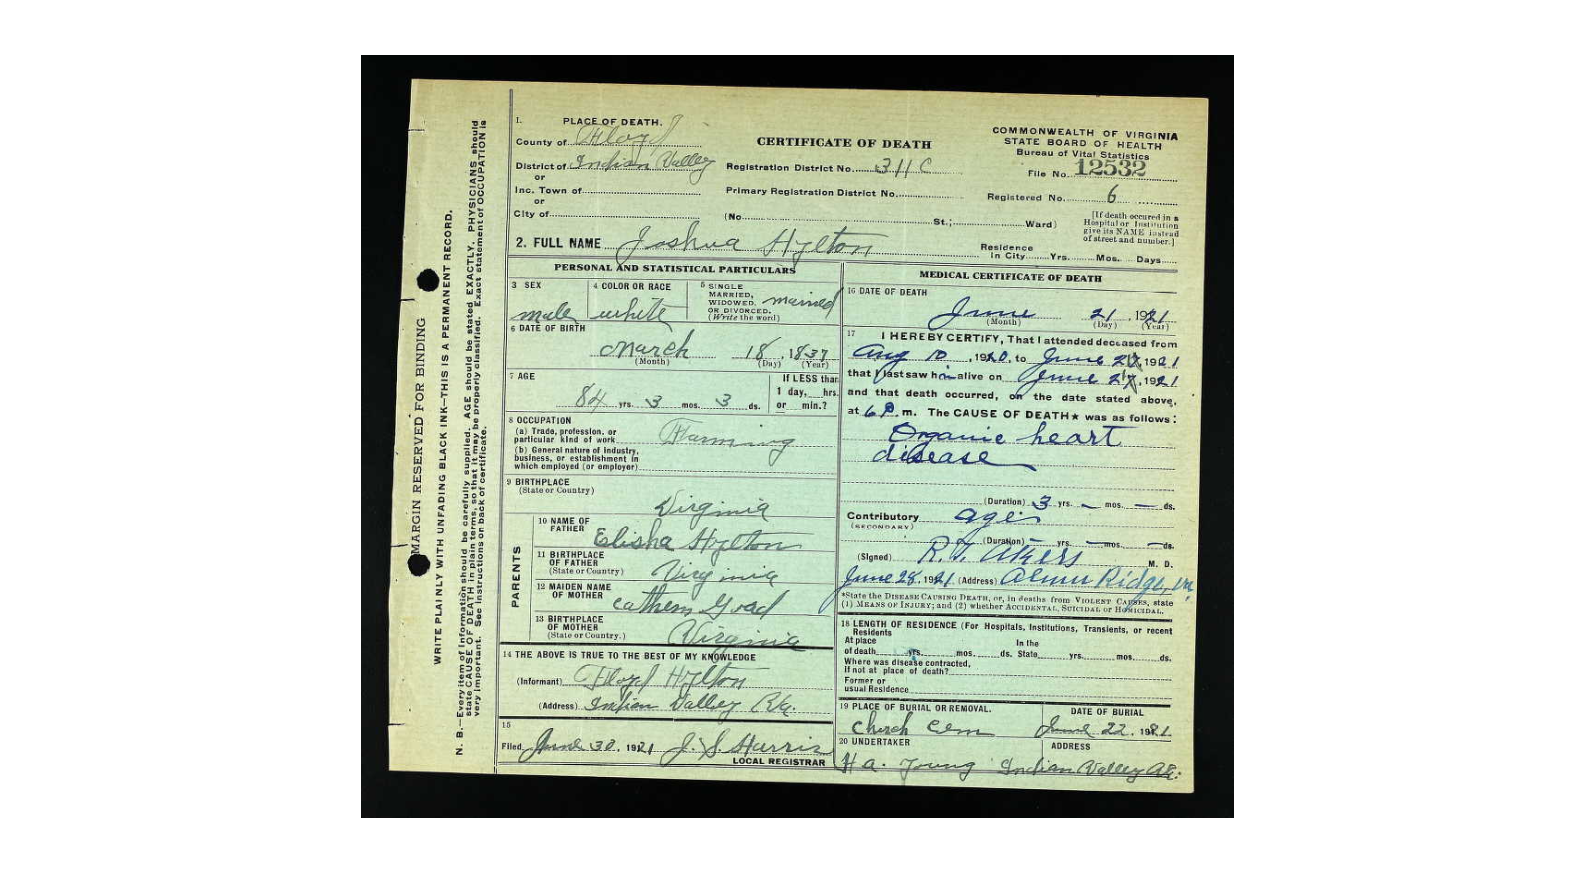 MARGIN RESERVED FOR BINDING
WRITE PLAINLY WITH UNFADING BLACK INK—THIS IS A PERMANENT RECORD.
N. B.—Every item of information should be carefully supplied. AGE should be stated EXACTLY. PHYSICIANS should
state CAUSE OF DEATH in plain terms, so that it may be properly classified. Exact statement of OCCUPATION is
very important. See instructions on back of certificate.
1. PLACE OF DEATH.
County of Floyd
District of Indian Valley
or
Inc. Town of
or
City of
CERTIFICATE OF DEATH
Registration District No. 311C
Primary Registration District No.
(No. St.; Ward)
COMMONWEALTH OF VIRGINIA
STATE BOARD OF HEALTH
Bureau of Vital Statistics
File No. 12532
Registered No. 6
[If death occured in a
Hospital or Institution
give its NAME instead
of street and number.]
2. FULL NAME Joshua Hylton
Residence
In City Yrs. Mos. Days
PERSONAL AND STATISTICAL PARTICULARS
3 SEX
male
4 COLOR OR RACE
white
5 SINGLE
MARRIED,
WIDOWED,
OR DIVORCED.
(Write the word)
married
6 DATE OF BIRTH
March 18, 1837
(Month) (Day) (Year)
7 AGE
84 yrs. 3 mos. 3 ds.
If LESS than
1 day, hrs.
or min.?
8 OCCUPATION
(a) Trade, profession, or
particular kind of work Farming
(b) General nature of industry,
business, or establishment in
which employed (or employer)
9 BIRTHPLACE
(State or Country)
Virginia
PARENTS
10 NAME OF
FATHER
Elisha Hylton
11 BIRTHPLACE
OF FATHER
(State or Country)
Virginia
12 MAIDEN NAME
OF MOTHER
Goad
13 BIRTHPLACE
OF MOTHER
(State or Country.)
Virginia
14 THE ABOVE IS TRUE TO THE BEST OF MY KNOWLEDGE
(Informant) Floyd Hylton
(Address) Indian Valley Va.
15
Filed June 30, 1921 J. S. Harris
LOCAL REGISTRAR
MEDICAL CERTIFICATE OF DEATH
16 DATE OF DEATH
June 21, 1921
(Month) (Day) (Year)
17 I HEREBY CERTIFY, That I attended deceased from
Aug 10, 1920, to June 21, 1921
that I last saw him alive on June 21, 1921
and that death occurred, on the date stated above,
at 6 P. m. The CAUSE OF DEATH★ was as follows:
Organic heart
disease
(Duration) 3 yrs. — mos. — ds.
Contributory age
(SECONDARY)
(Duration) — yrs. — mos. — ds.
(Signed) R. T. Akers M. D.
June 28, 1921 (Address) Ridge, Va.
*State the DISEASE CAUSING DEATH, or, in deaths from VIOLENT CAUSES, state
(1) MEANS OF INJURY; and (2) whether ACCIDENTAL, SUICIDAL or HOMICIDAL.
18 LENGTH OF RESIDENCE (For Hospitals, Institutions, Transients, or recent
Residents
At place In the
of death yrs. mos. ds. State yrs. mos. ds.
Where was disease contracted,
If not at place of death?
Former or
usual Residence
19 PLACE OF BURIAL OR REMOVAL.
Church Cem
DATE OF BURIAL
June 22, 1921
20 UNDERTAKER
H a. Young
ADDRESS
Indian Valley Va.